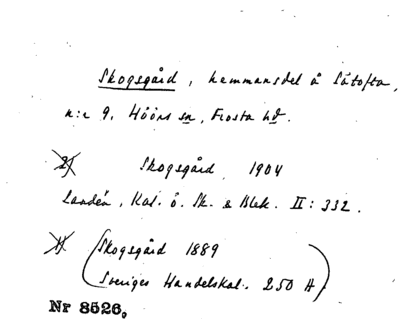 Skogsgård, hemmansdel å Sätofta,
n:r 9, Höörs sn, Frosta hd.
2) Skogsgård 1904
Landén, Kat. ö. Sk. & Blek. II: 332.
1) (Skogsgård 1889
Sveriges Handelskal. 250 H)
Nr 8526.